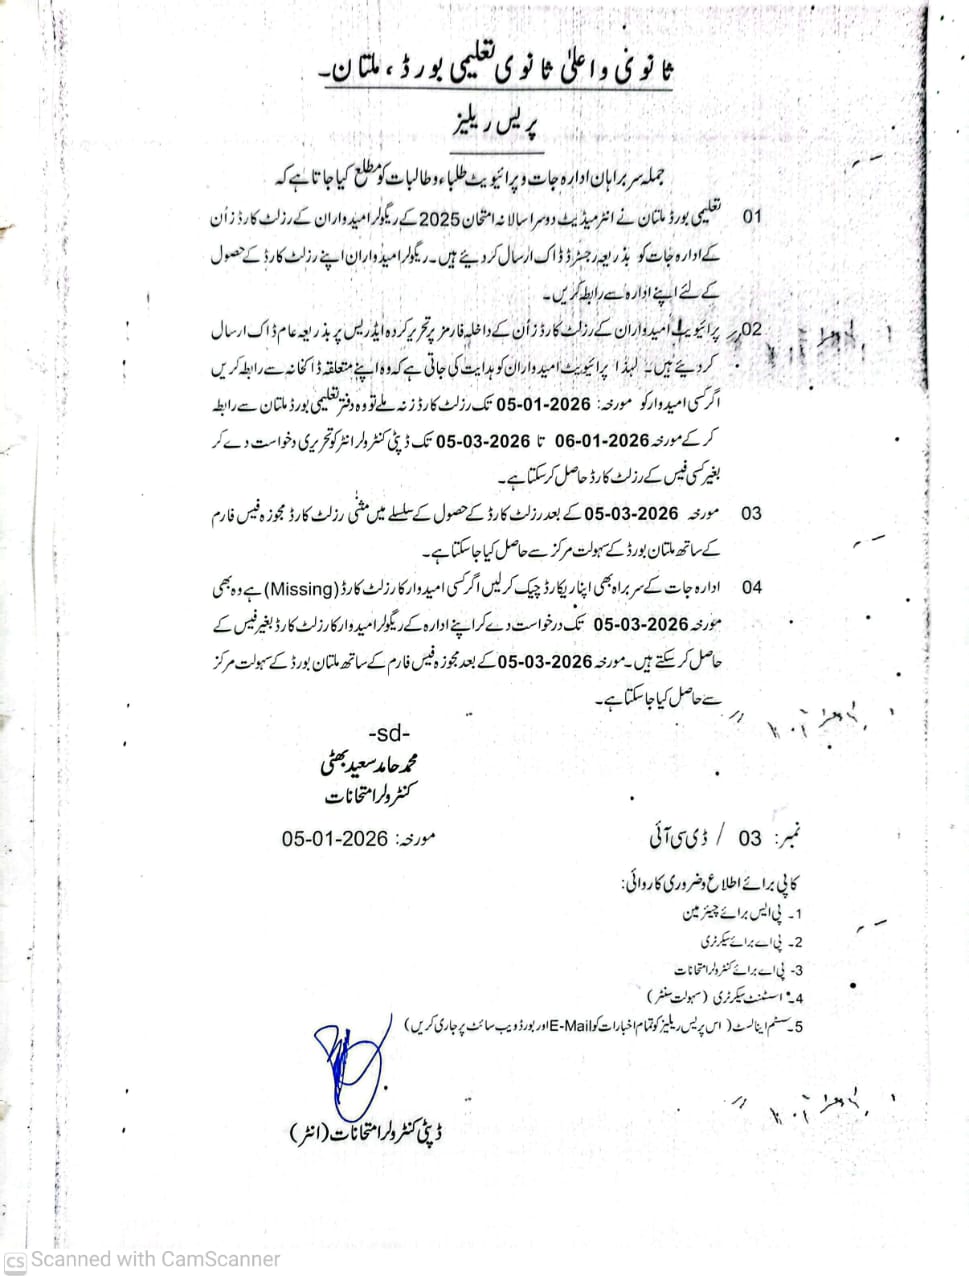 ثانوی و اعلیٰ ثانوی تعلیمی بورڈ ، ملتان۔
پریس ریلیز
جملہ سربراہان ادارہ جات و پرائیویٹ طلباء و طالبات کو مطلع کیا جاتا ہے کہ
01 تعلیمی بورڈ ملتان نے انٹرمیڈیٹ دوسرا سالانہ امتحان 2025 کے ریگولر امیدواران کے رزلٹ کارڈز اُن
کے ادارہ جات کو بذریعہ رجسٹرڈ ڈاک ارسال کر دیئے ہیں۔ ریگولر امیدواران اپنے رزلٹ کارڈ کے حصول
کے لئے اپنے ادارہ سے رابطہ کریں۔
02 پرائیویٹ امیدواران کے رزلٹ کارڈز اُن کے داخلہ فارمز پر تحریر کردہ ایڈریس پر بذریعہ عام ڈاک ارسال
کر دیئے ہیں۔ لہذا پرائیویٹ امیدواران کو ہدایت کی جاتی ہے کہ وہ اپنے متعلقہ ڈاکخانہ سے رابطہ کریں
اگر کسی امیدوار کو مورخہ: 05-01-2026 تک رزلٹ کارڈ نہ ملے تو وہ دفتر تعلیمی بورڈ ملتان سے رابطہ
کر کے مورخہ 06-01-2026 تا 05-03-2026 تک ڈپٹی کنٹرولر انٹر کو تحریری دخواست دے کر
بغیر کسی فیس کے رزلٹ کارڈ حاصل کر سکتا ہے۔
03 مورخہ 05-03-2026 کے بعد رزلٹ کارڈ کے حصول کے سلسلے میں مثنٰی رزلٹ کارڈ مجوزہ فیس فارم
کے ساتھ ملتان بورڈ کے سہولت مرکز سے حاصل کیا جا سکتا ہے۔
04 ادارہ جات کے سربراہ بھی اپنا ریکارڈ چیک کر لیں اگر کسی امیدوار کا رزلٹ کارڈ (Missing) ہے وہ بھی
مورخہ 05-03-2026 تک درخواست دے کر اپنے ادارہ کے ریگولر امیدوار کا رزلٹ کارڈ بغیر فیس کے
حاصل کر سکتے ہیں۔ مورخہ 05-03-2026 کے بعد مجوزہ فیس فارم کے ساتھ ملتان بورڈ کے سہولت مرکز
سے حاصل کیا جا سکتا ہے۔
-sd-
محمد حامد سعید بھٹی
کنٹرولر امتحانات
نمبر: 03 / ڈی سی آئی مورخہ: 05-01-2026
کاپی برائے اطلاع و ضروری کاروائی:
1۔ پی ایس برائے چیئرمین
2۔ پی اے برائے سیکرٹری
3- پی اے برائے کنٹرولر امتحانات
4۔ اسسٹنٹ سیکرٹری (سہولت سنٹر)
5۔ سسٹم اینالسٹ ( اس پریس ریلیز کو تمام اخبارات کو E-Mail اور بورڈ ویب سائٹ پر جاری کریں)
ڈپٹی کنٹرولر امتحانات (انٹر)
CS Scanned with CamScanner